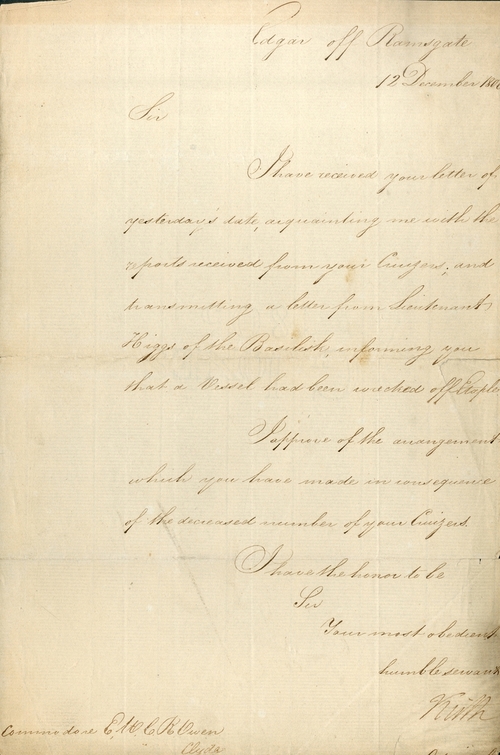 Edgar off Ramsgate
12 December 180
Sir
I have received your letter of
yesterday's date, acquainting me with the
reports received from your Cruizers, and
transmitting a letter from Lieutenant
Higgs of the Basilisk, informing you
that a Vessel had been wrecked off Etaples
I approve of the arrangement
which you have made in consequence
of the decreased number of your Cruizers.
I have the honor to be
Sir
Your most obedient
humble servant
Keith
Commodore E.W.C.R. Owen
Clyde